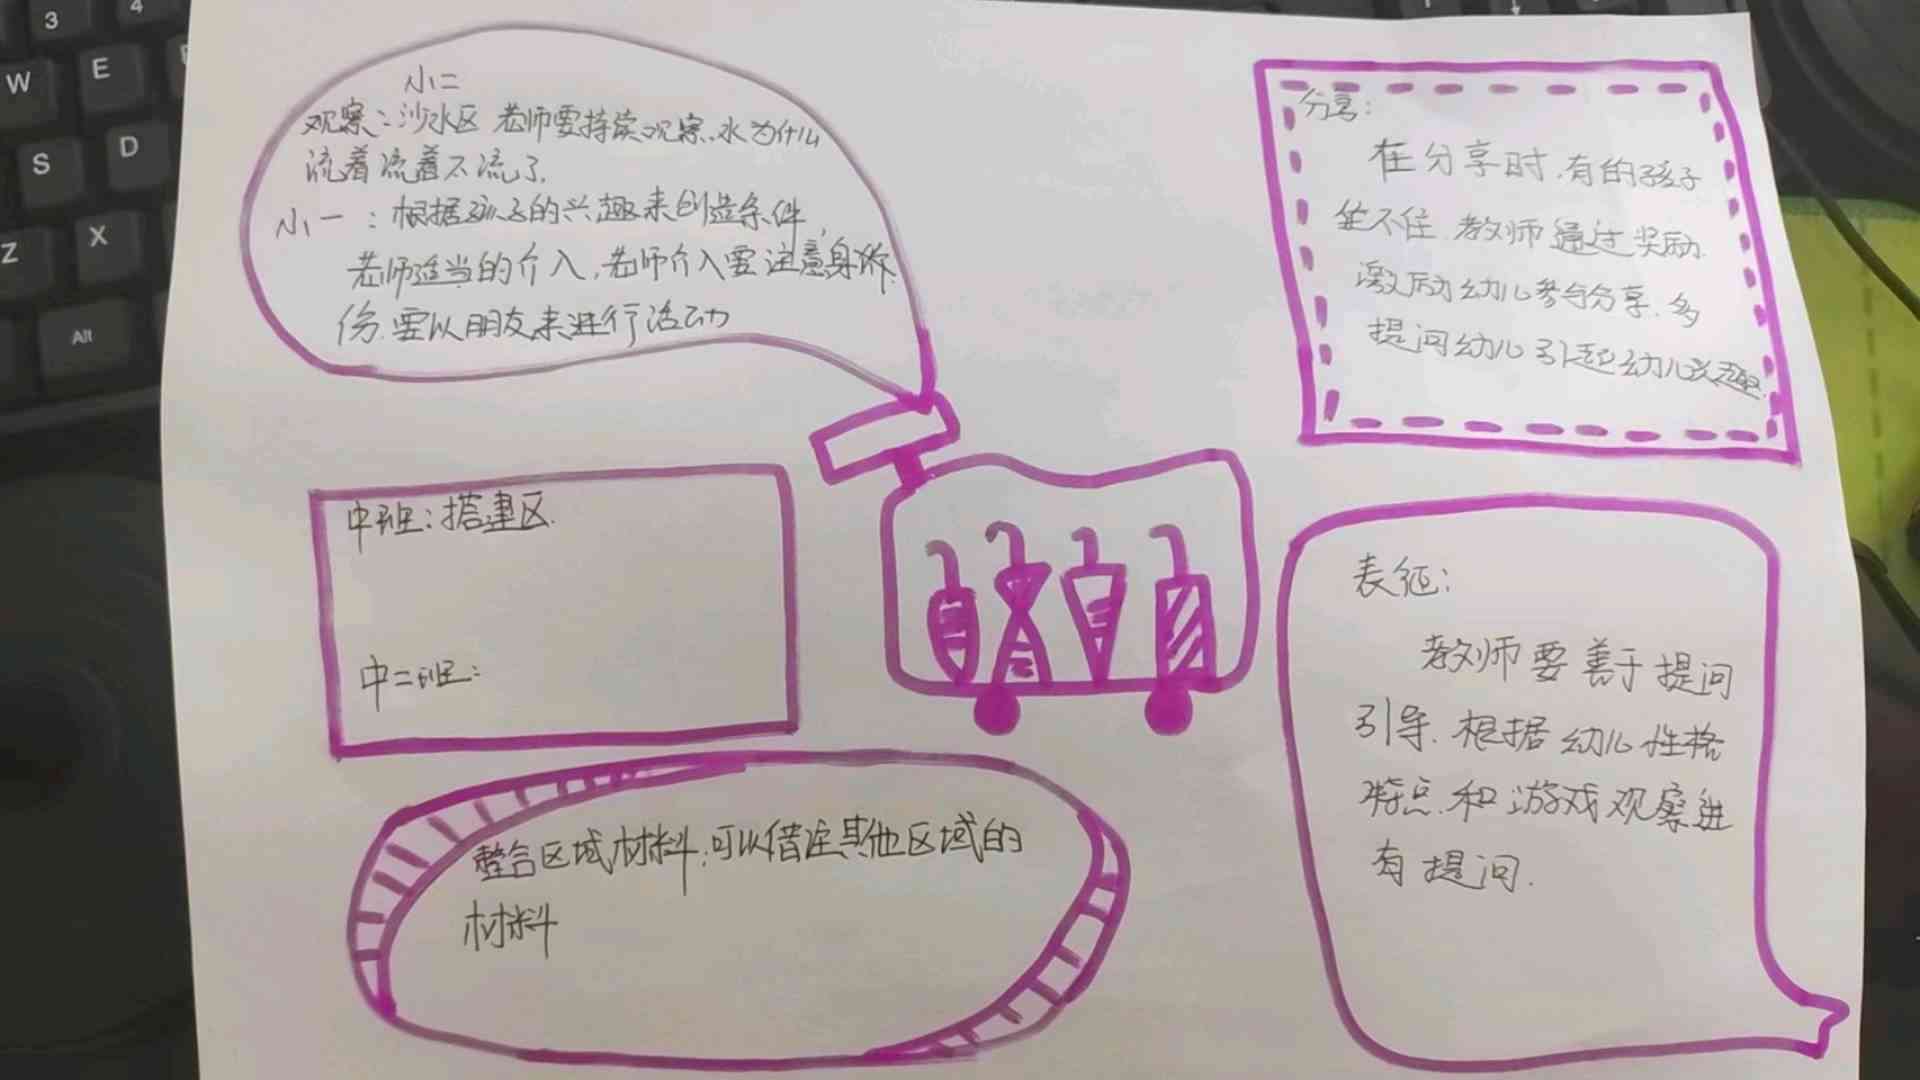 小二
观察：沙水区 老师要持续观察.水为什么
流着流着不流了.
小一：根据孩子的兴趣来创造条件,
老师适当的介入,老师介入要注意身份
份.要以朋友来进行活动
分享：
在分享时.有的孩子
坐不住.教师通过奖励.
激励幼儿参与分享.多
提问幼儿引起幼儿兴趣.
中班：搭建区.
中二班：
表征：
教师要善于提问
引导.根据幼儿性格
特点.和游戏观察进
有提问.
整合区域材料,可以借注其他区域的
材料
3
4
W
E
S
D
Z
X
Alt